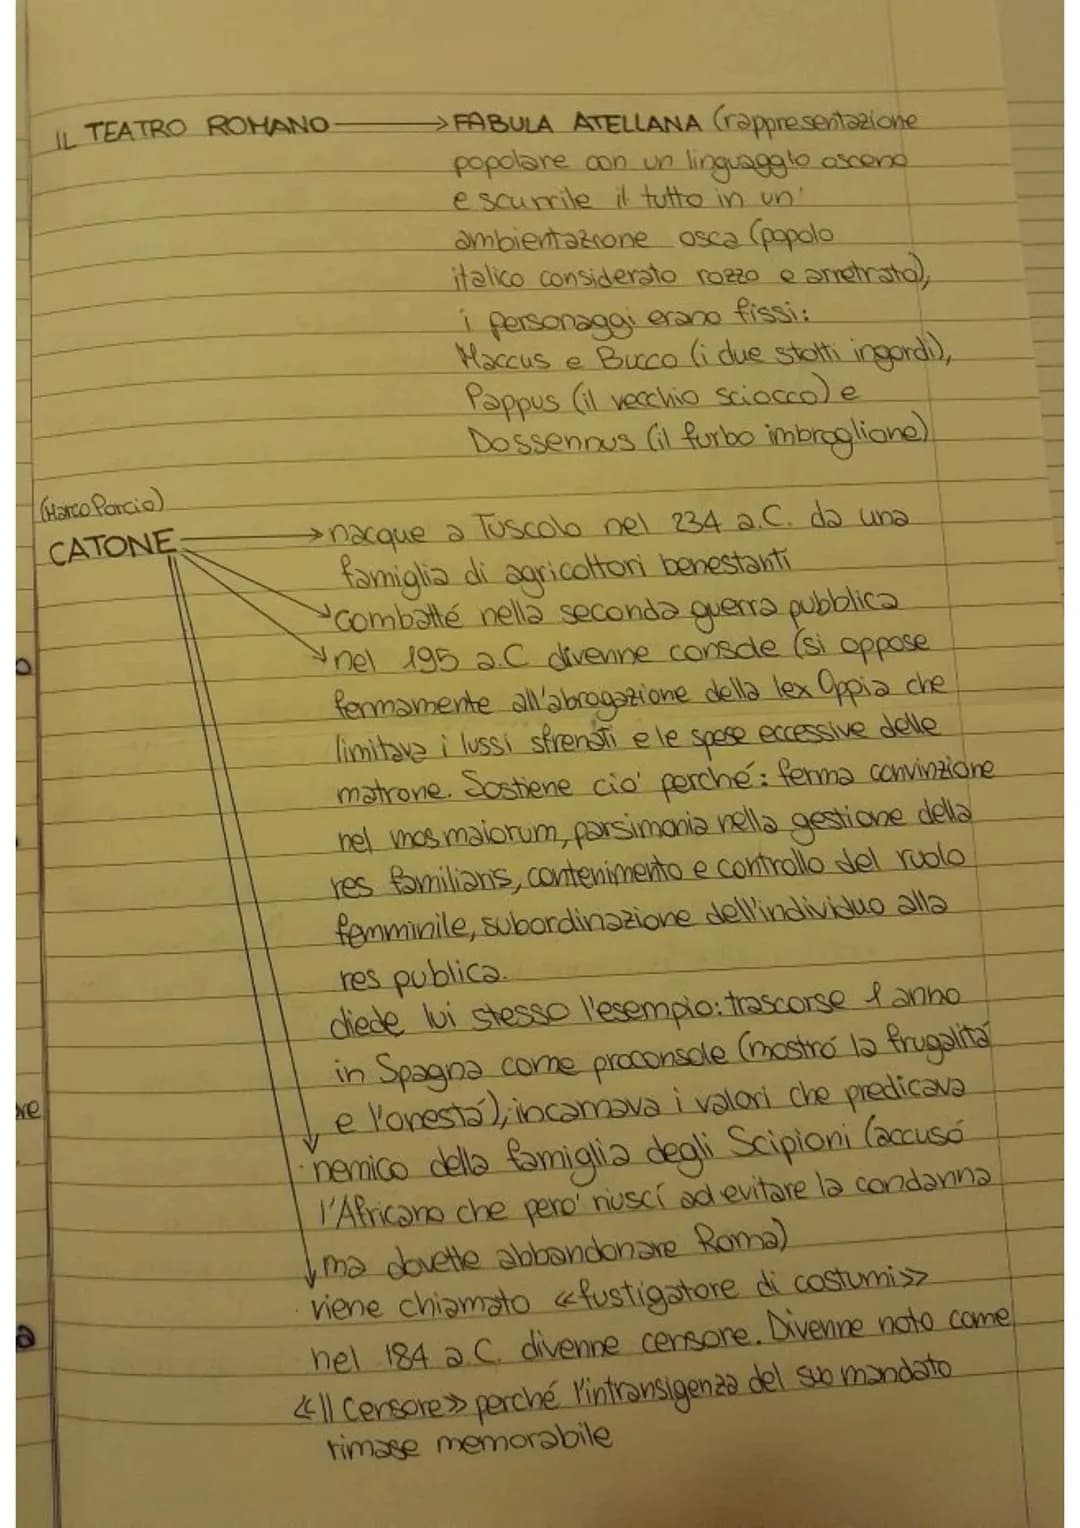 IL TEATRO ROMANO → FABULA ATELLANA (rappresentazione
popolare con un linguaggio osceno
e scurrile il tutto in un'
ambientazione osca (popolo
italico considerato rozzo e arretrato),
i personaggi erano fissi:
Maccus e Bucco (i due stolti ingordi),
Pappus (il vecchio sciocco) e
Dossennus (il furbo imbroglione)
(Marco Porcio)
CATONE → nacque a Tuscolo nel 234 a.C. da una
famiglia di agricoltori benestanti
combatté nella seconda guerra pubblica
nel 195 a.C divenne console (si oppose
fermamente all'abrogazione della lex Oppia che
limitava i lussi sfrenati e le spese eccessive delle
matrone. Sostiene cio' perché: ferma convinzione
nel mos maiorum, parsimonia nella gestione della
res familiaris, contenimento e controllo del ruolo
femminile, subordinazione dell'individuo alla
res publica.
diede lui stesso l'esempio: trascorse 1 anno
in Spagna come proconsole (mostró la frugalitá
e l'onestá), incarnava i valori che predicava
· nemico della famiglia degli Scipioni (accusó
l'Africano che pero' riuscí ad evitare la condanna
ma dovette abbandonare Roma)
· viene chiamato «fustigatore di costumi»
nel 184 a.C. divenne censore. Divenne noto come
«Il Censore» perché l'intransigenza del suo mandato
rimase memorabile